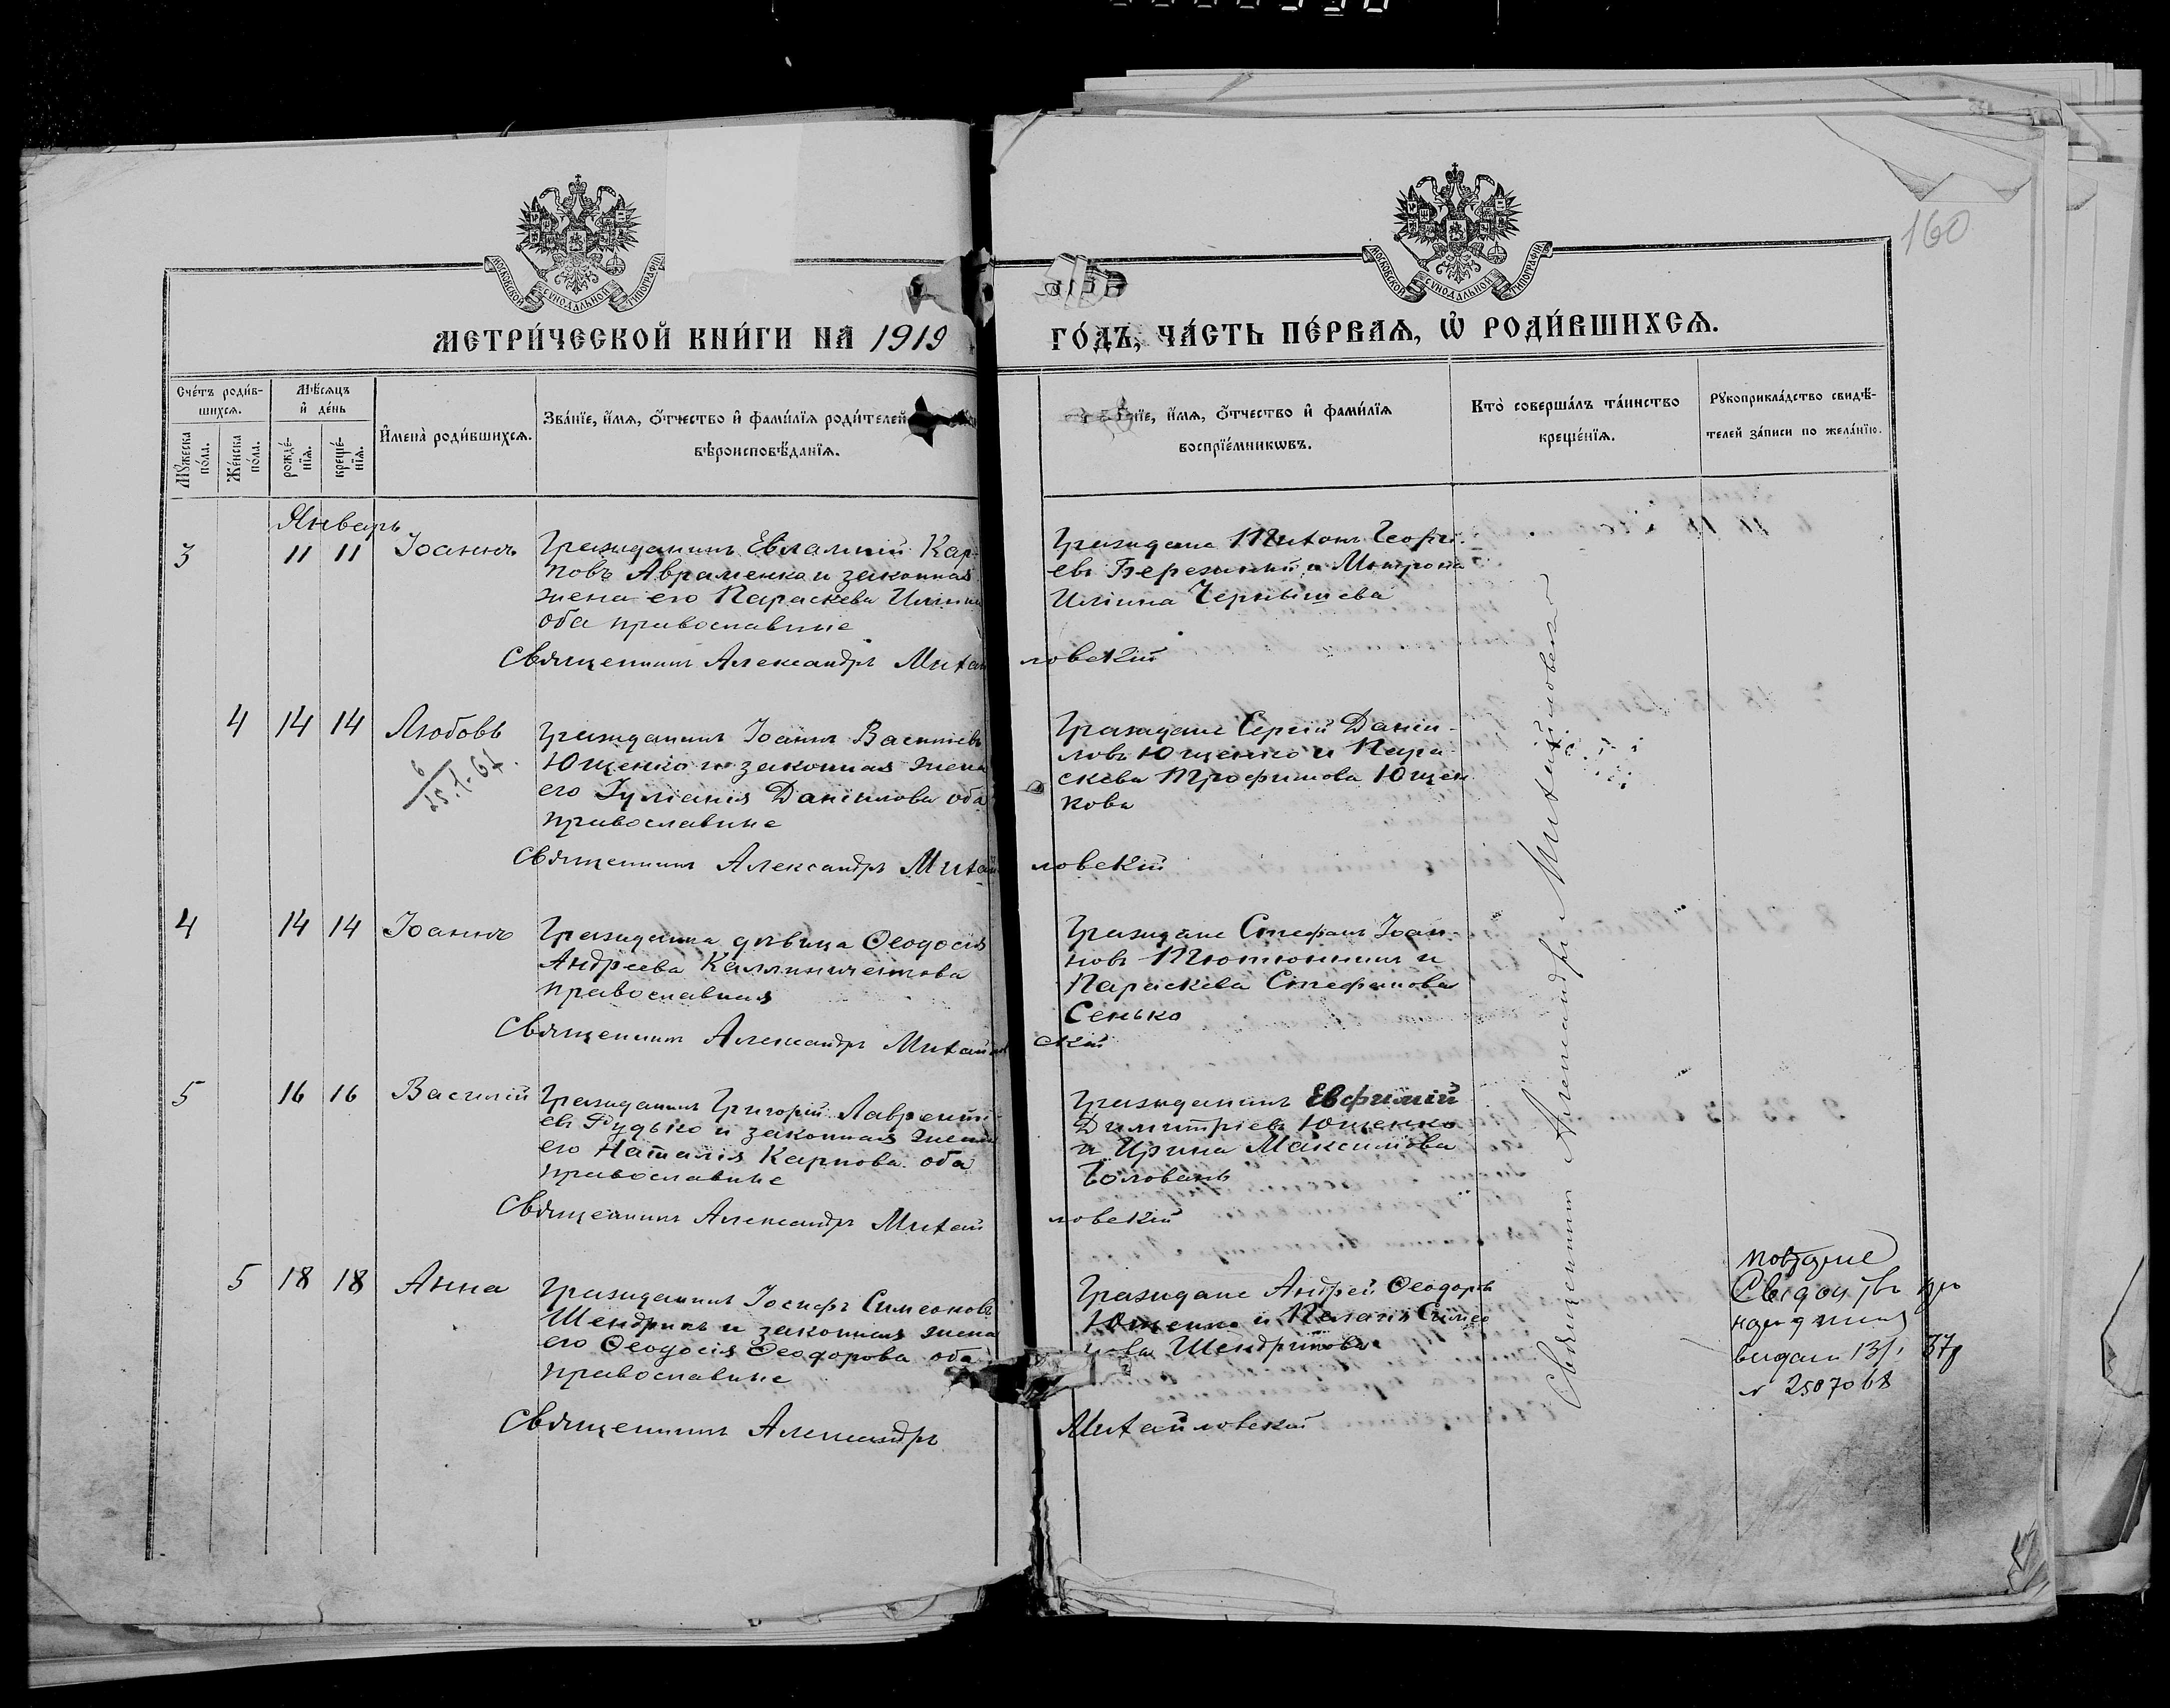 160
МОСКОВСКОЙ СѴНОДАЛЬНОЙ ТИПОГРАФІИ
МОСКОВСКОЙ СѴНОДАЛЬНОЙ ТИПОГРАФІИ
МЕТРИ́ЧЕСКОЙ КНИ́ГИ НА 1919 ГО́ДЪ, ЧА́СТЬ ПЕ́РВАѦ, Ѡ҆ РОДИ́ВШИХСѦ.
Сче́тъ роди́в-
шихсѧ.
Мѣ́сѧцъ
и҆ де́нь
Мꙋ́жеска по́ла.
Же́нска по́ла.
рожде́-
нїѧ.
креще́-
нїѧ.
И҆мена̀ роди́вшихсѧ.
Зва́нїе, и҆́мѧ, ѻ҆́тчество и҆ фами́лїѧ роди́телей
вѣроисповѣ́данїѧ.
нїе, и҆́мѧ, ѻ҆́тчество и҆ фами́лїѧ
воспрїе́мникѡвъ.
Кто̀ соверша́лъ та́инство
креще́нїѧ.
Рꙋкоприкла́дство свидѣ́-
телей за́писи по жела́нїю.
Январь
3 11 11 Іоаннъ
Гражданинъ Евлампій Кар-
повъ Авраменко и законная
жена его Параскева Иліина
оба православные
Граждане Титъ Георгі-
евъ Березкій и Матрона
Иліина Чернышева
Священникъ Александръ Михайловскій
4 14 14 Любовь
Гражданинъ Іоаннъ Васильевъ
Ющенко и законная жена
его Іуліанія Даніилова оба
православные
Граждане Сергій Даніи-
ловъ Ющенко и Пара-
скева Трофимова Ющен
кова
Священникъ Александръ Михайловскій
4 14 14 Іоаннъ
Гражданка дѣвица Ѳеодосія
Андреева Каллиниченкова
православная
Граждане Стефанъ Іоан-
новъ Тютюнникъ и
Параскева Стефанова
Сенько
Священникъ Александръ Михайловскій
5 16 16 Василій
Гражданинъ Григорій Лавренті-
евъ Рудько и законная жена
его Наталія Карпова оба
православные
Гражданинъ Евфимій
Димитріевъ Ющенко
и Ирина Максимова
Головань
Священникъ Александръ Михайловскій
5 18 18 Анна
Гражданинъ Іосифъ Симеоновъ
Шендрикъ и законная жена
его Ѳеодосія Ѳеодорова оба
православные
Граждане Андрей Ѳеодоровъ
Ющенко и Пелагія Симео
нова Шендрикова
Священникъ Александръ Михайловскій
Священникъ Александръ Михайловскій
№ 2507068